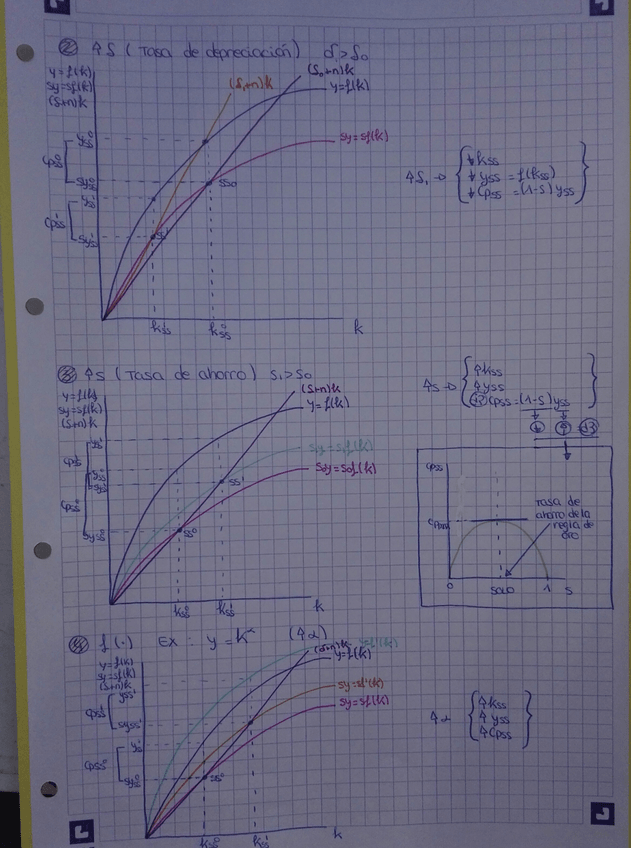 ② ↑δ (Tasa de depreciación) δ₁>δ₀
y=f(k)
sy=sf(k)
(δ+n)k
(δ₁+n)k
(δ₀+n)k
y=f(k)
sy=sf(k)
yss⁰
cpss⁰
syss⁰
yss¹
cpss¹
syss¹
ss⁰
ss¹
kss¹
kss⁰
k
↑δ₁ → { ↓kss
↓yss = f(kss)
↓cpss = (1-s)yss }
③ ↑s (Tasa de ahorro) s₁>s₀
y=f(k)
sy=sf(k)
(δ+n)k
(δ+n)k
y=f(k)
s₁y=s₁f(k)
s₀y=s₀f(k)
ss¹
ss⁰
syss⁰
kss⁰
kss¹
k
↑s → { ↑kss
↑yss
¿? cpss=(1-s)yss }
↓ ↑ = ¿?
cpss
Tasa de
ahorro de la
regla de
oro
0
soro
1
s
④ f(·) Ex: y=k^α (↑α)
y=f(k)
sy=sf(k)
(δ+n)k
(δ+n)k
y=f'(k)
y=f(k)
sy=sf'(k)
sy=sf(k)
yss¹
cpss¹
syss¹
yss⁰
cpss⁰
syss⁰
ss⁰
kss⁰
kss¹
k
↑α { ↑kss
↑yss
↑cpss }